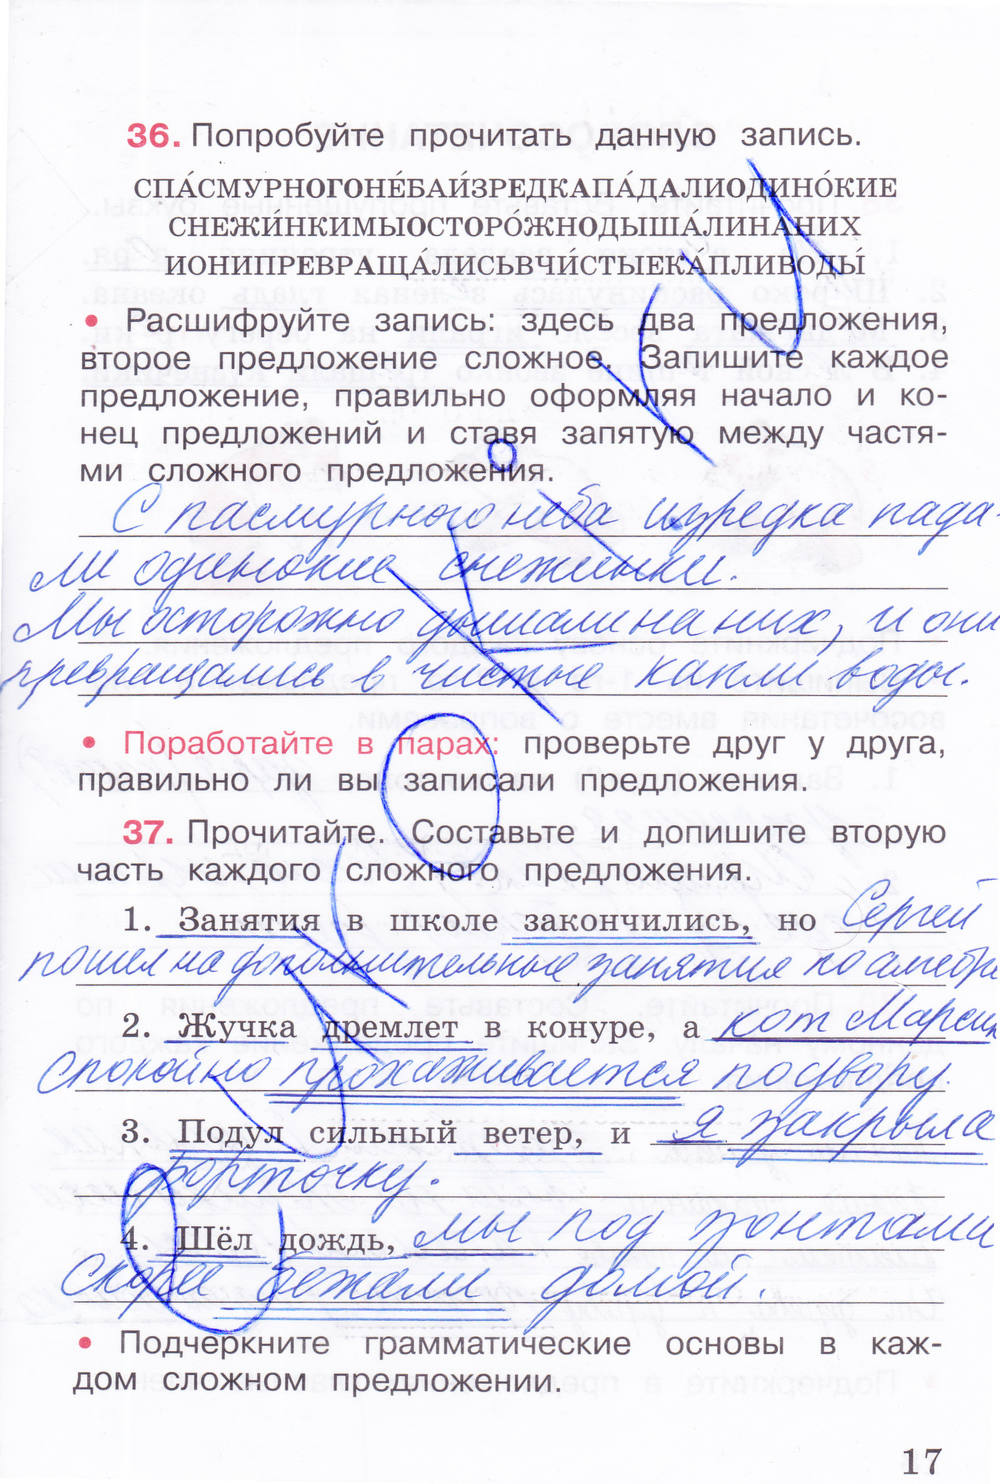 36. Попробуйте прочитать данную запись.
СПА́СМУРНОГОНЕ́БАИ́ЗРЕДКАПА́ДАЛИОДИНО́КИЕ
СНЕЖИ́НКИМЫОСТОРО́ЖНОДЫША́ЛИНАНИХ
ИОНИПРЕВРАЩА́ЛИСЬВЧИ́СТЫЕКА́ПЛИВОДЫ́
• Расшифруйте запись: здесь два предложения,
второе предложение сложное. Запишите каждое
предложение, правильно оформляя начало и ко-
нец предложений и ставя запятую между частя-
ми сложного предложения.
С пасмурного неба изредка пада-
ли одинокие снежинки.
Мы осторожно дышали на них, и они
превращались в чистые капли воды.
• Поработайте в парах: проверьте друг у друга,
правильно ли вы записали предложения.
37. Прочитайте. Составьте и допишите вторую
часть каждого сложного предложения.
1. Занятия в школе закончились, но Сергей
пошел на дополнительные занятия по алгебре
2. Жучка дремлет в конуре, а кот Марсик
спокойно прохаживается по двору
3. Подул сильный ветер, и я закрыла
форточку.
4. Шёл дождь, мы под зонтами
скорее бежали домой.
• Подчеркните грамматические основы в каж-
дом сложном предложении.
17